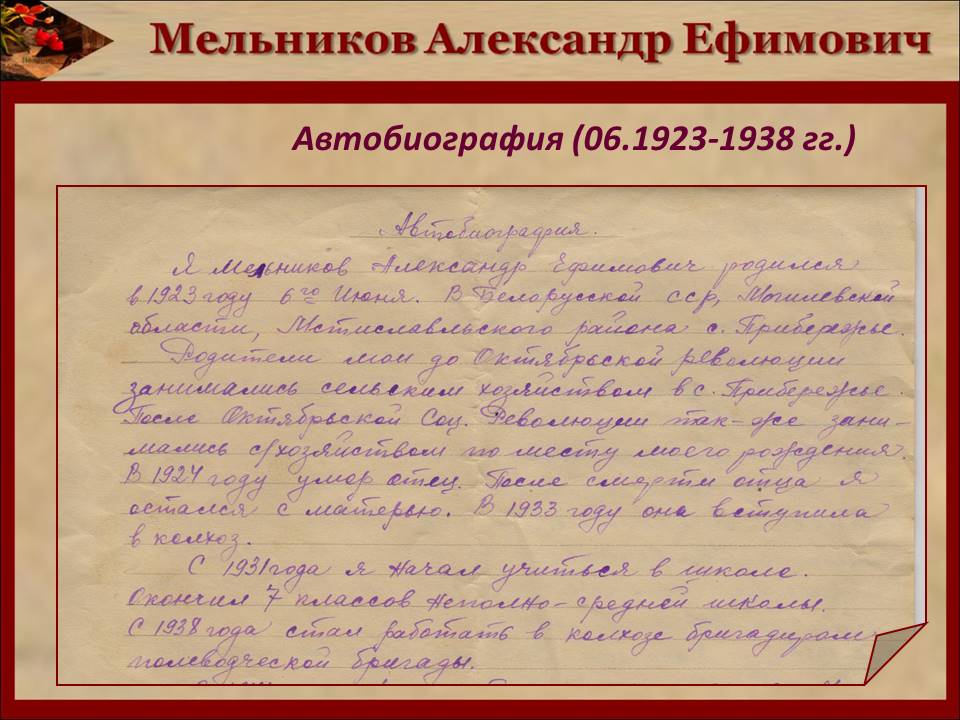 Мельников Александр Ефимович
Автобиография (06.1923-1938 гг.)
Автобиография.
Я Мельников Александр Ефимович родился
в 1923 году 6го Июня. В Белорусской сср, Могилевской
области, Мстиславльского района с. Прибережье.
Родители мои до Октябрьской революции
занимались сельским хозяйством в с. Прибережье.
После Октябрьской Соц. Революции так-же зани-
мались с/хозяйством по месту моего рождения.
В 1924 году умер отец. После смерти отца я
остался с матерью. В 1933 году она вступила
в колхоз.
С 1931 года я начал учиться в школе.
Окончил 7 классов неполно-средней школы.
С 1938 года стал работать в колхозе бригадиром
полеводческой бригады.